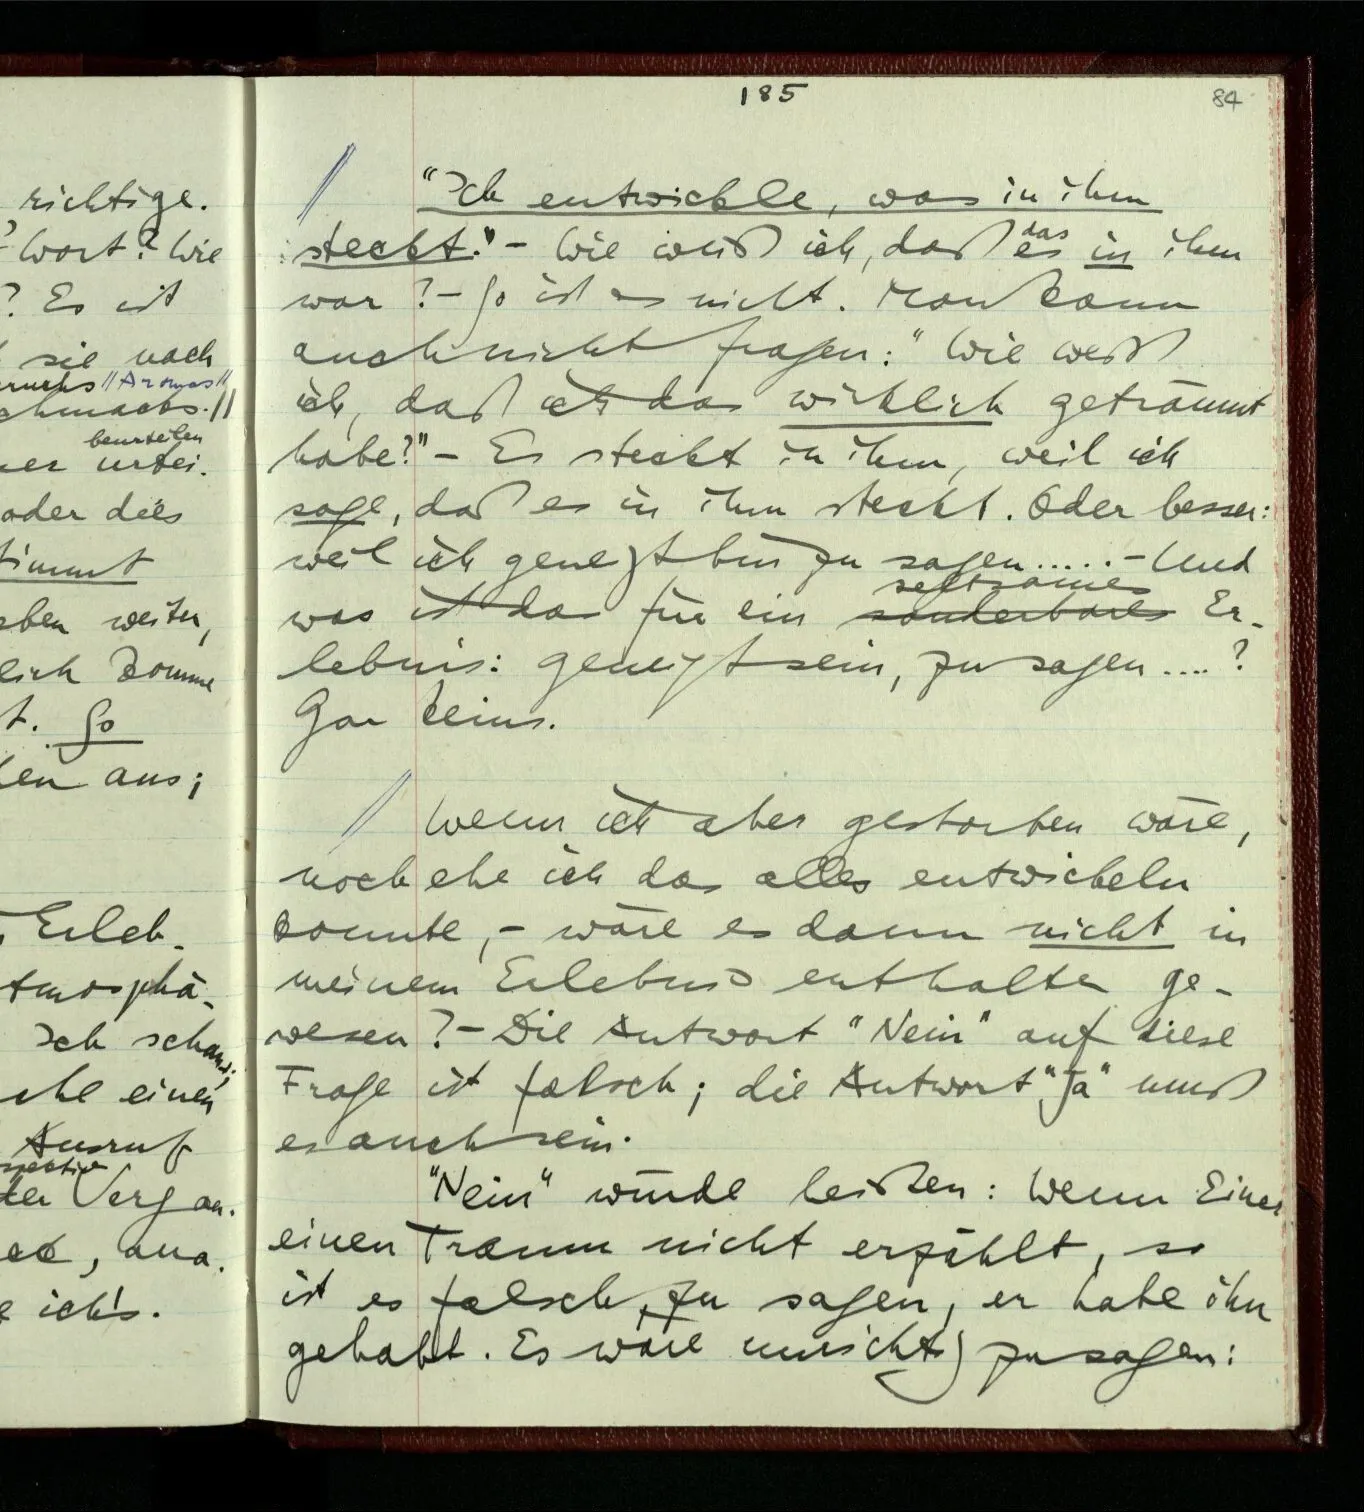 185
84
richtige.
Wort? Wie
? Es ist
sie nach
"Aromas"
beurteilen
urtei.
oder dies
stimmt
eben weiter,
lich komme
t. So
en aus;
Erleb-
tmosphä-
Ich schau
ehe einen
Ausruf
der Vergan-
, ana.
ich's.
"Ich entwickle, was in ihm
steckt." – Wie weiß ich, daß es das in ihm
war? – So ist es nicht. Man kann
auch nicht fragen: "Wie weiß
ich, daß ich das wirklich geträumt
habe?" – Es steckt in ihm, weil ich
sage, daß es in ihm steckt. Oder besser:
weil ich geneigt bin zu sagen..... – Und
seltsames
was ist das für ein sonderbares Er-
lebnis: geneigt sein, zu sagen ....?
Gar keins.
Wenn ich aber gestorben wäre,
noch ehe ich das alles entwickeln
konnte, – wäre es dann nicht in
meinem Erlebnis enthalten ge-
wesen? – Die Antwort "Nein" auf diese
Frage ist falsch; die Antwort "Ja" muß
es auch sein.
"Nein" würde heißen: Wenn Einer
einen Traum nicht erzählt, so
ist es falsch, zu sagen, er habe ihn
gehabt. Es wäre unrichtig zu sagen: